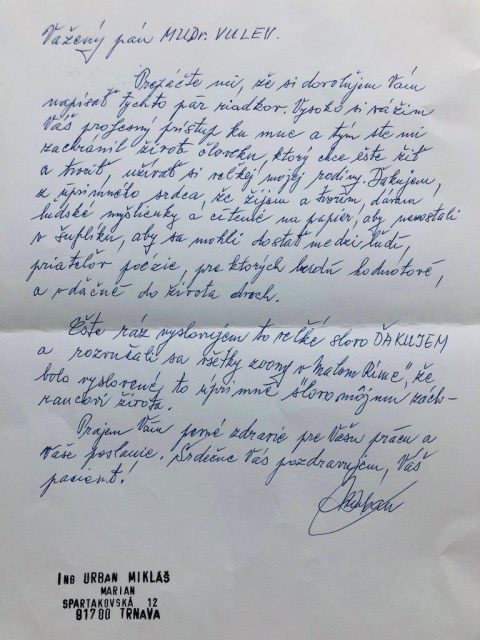 Vážený pán MUDr. VULEV.
Prepáčte mi, že si dovoľujem Vám
napísať týchto pár riadkov. Vysoko si vážim
Váš profesný prístup ku mne a tým ste mi
zachránil života človeku, ktorý chce ešte žiť
a tvoriť, užívať si veľkej mojej rodiny. Ďakujem,
z úprimného srdca, že žijem a tvorím, dávam
ľudské myšlienky a cítenie na papier, aby nezostali
v šuplíku, aby sa mohli dostať medzi ľudí,
priateľov poézie, pre ktorých budú hodnotové,
a vďačné do života dvoch.
Ešte raz vyslovujem to veľké slovo ĎAKUJEM
a rozozvučali sa všetky zvony v "Malom Ríme", že
bolo vyslovené to úprimné "slovo môjmu zách-
rancovi života.
Prajem Vám pevné zdravie pre Vašu prácu a
Vaše poslanie. Srdečne Vás pozdravujem, Váš
pacient!
ING URBAN MIKLÁŠ
MARIAN
SPARTAKOVSKÁ 12
91700 TRNAVA